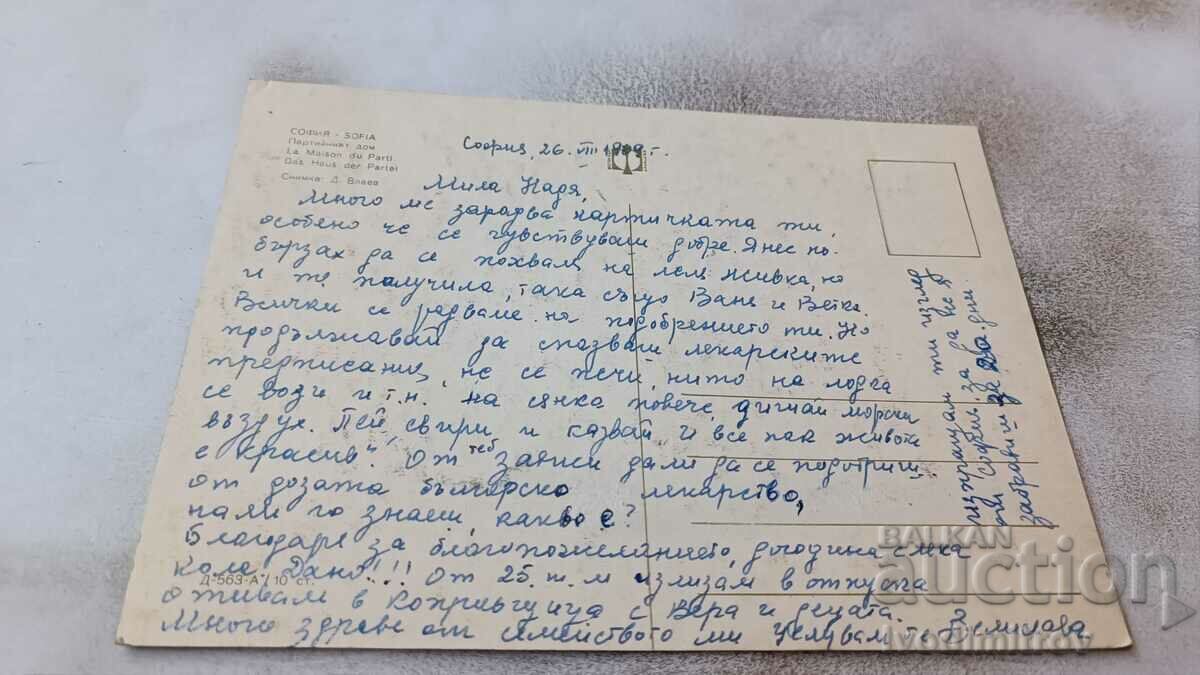 СОФИЯ - SOFIA
Партийният дом
La Maison du Parti
Das Haus der Partei
Снимка: Д. Влаев
София, 26. VIII г.
Мила Надя,
Много ме зарадва картичката ти,
особено че се чувствуваш добре. Днес по-
бързах да се похваля на леля Живка, но
и тя получила, така също Ваня и Ветка.
Всички се радваме на подобрението ти. Но
продължавай да спазваш лекарските
предписания, не се печи, нито на лодка
се вози и т.н. на сянка повече, дишай морски
въздух. Пей, свири и казвай „И все пак живота
е красив". От теб зависи дали да се подобриш
от дозата българско лекарство,
нали го знаеш, какво е?
Благодаря за благопожеланието, догодина с лека
кола. Дано!!! От 25. т.м излизам в отпуска
отивам в Копривщица с Вера и децата.
Много здраве от семейството ми Целувам те
изпращам ти изглед
от София, за да не я
забравиш за дни.
Д-563-А 10 ст.
BALKAN
auction
Ivodimitrov